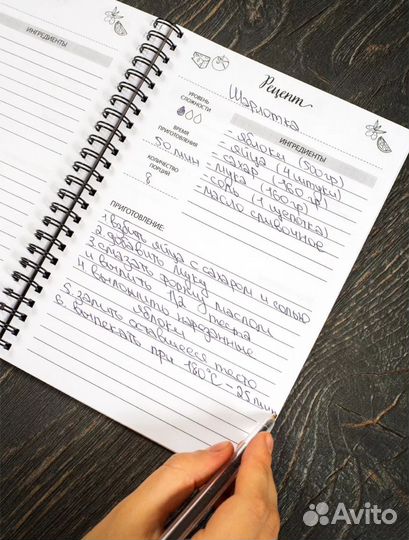 ИНГРЕДИЕНТЫ
Рецепт
Шарлотка
УРОВЕНЬ
СЛОЖНОСТИ
ВРЕМЯ
ПРИГОТОВЛЕНИЯ
50 мин
КОЛИЧЕСТВО
ПОРЦИЙ
8
ИНГРЕДИЕНТЫ
- яблоки (500гр)
- яйца (4 штуки)
- сахар (160 гр)
- мука (160гр)
- соль (1 щепотка)
- масло сливочное
ПРИГОТОВЛЕНИЕ
1 взбить яйца с сахаром и солью
2. добавить муку
3 смазать форму маслом
и вылить 1/2 теста
4 выложить нарезанные
яблоки
5. залить оставшееся тесто
6. выпекать при 180°С - 25 мин
Avito